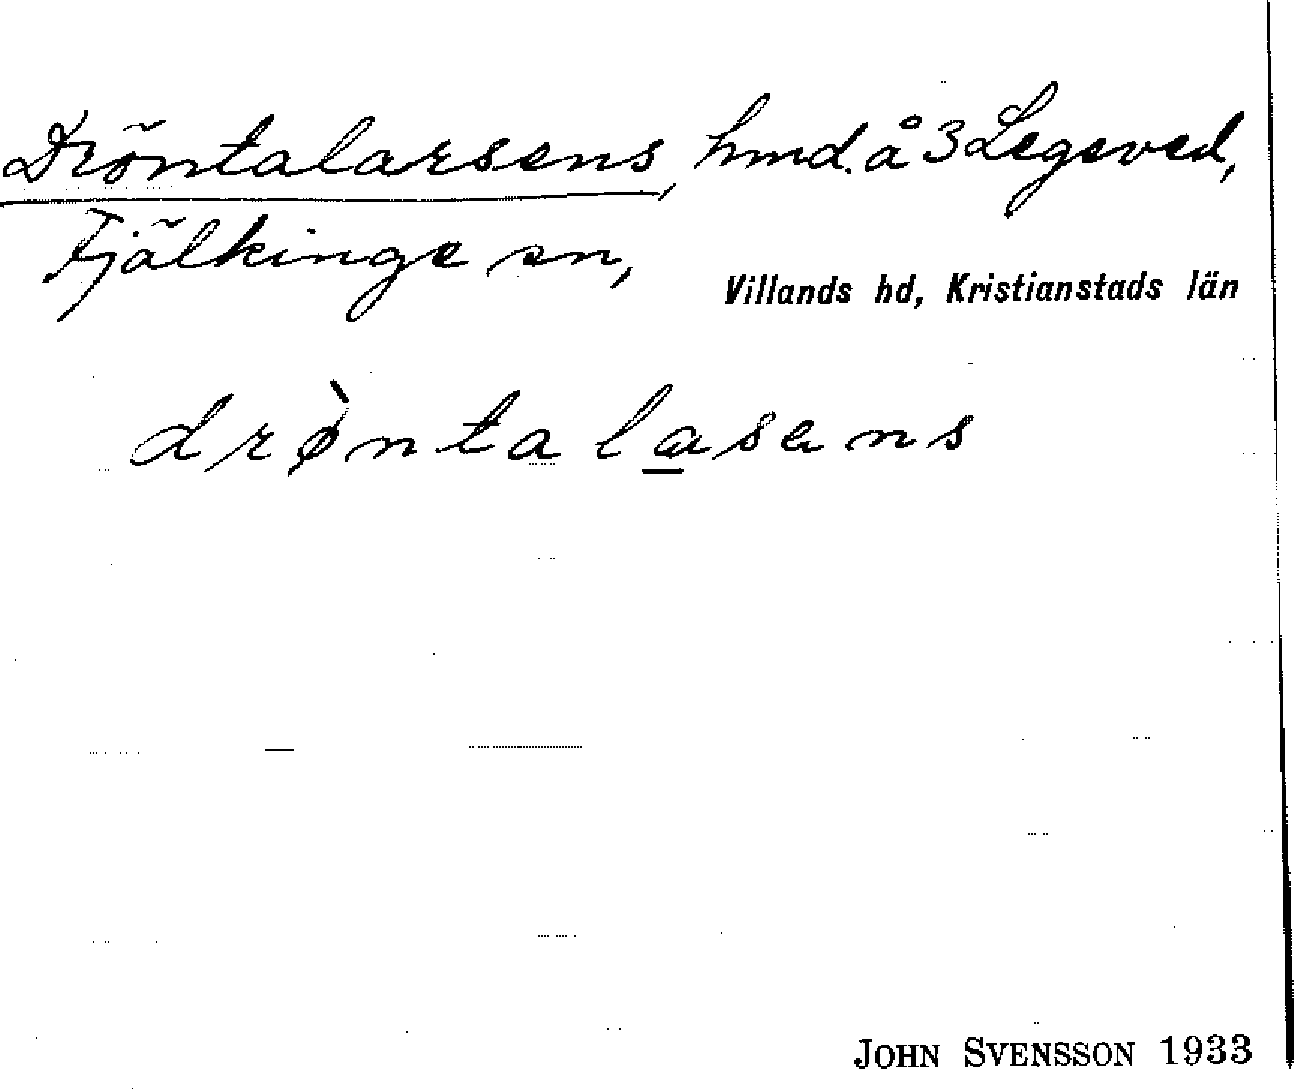 Dröntalarsens, hmd. å 3 Legeved,
Fjälkinge sn,
Villands hd, Kristianstads län
drø̀ntala̲sens
JOHN SVENSSON 1933